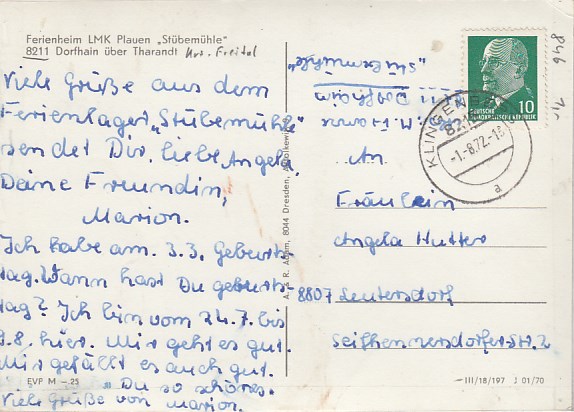 Ferienheim LMK Plauen „Stübemühle“
8211 Dorfhain über Tharandt Krs. Freital
Viele Grüße aus dem
Ferienlager „Stübemühle“
sendet Dir, liebe Angela,
Deine Freundin,
Marion.
Ich habe am 3.3. Geburts-
tag. Wann hast Du Geburts-
tag? Ich bin vom 24.7. bis
9.8. hier. Mir geht es gut.
Mir gefällt es auch gut.
„Du so schönes.
Viele Grüße von Marion.
EVP M – 25
A. u. R. Adam, 8044 Dresden, Altolkewitz
"Stübenmühle"
Dorfhain
DEUTSCHE
DEMOKRATISCHE REPUBLIK
10
KLINGENBERG
821
-1.-8.72-1
a
846
An
Fräulein
Angela Hutter
8807 Leutersdorf
Seifhennersdorfer-Str. 2
III/18/197 J 01/70